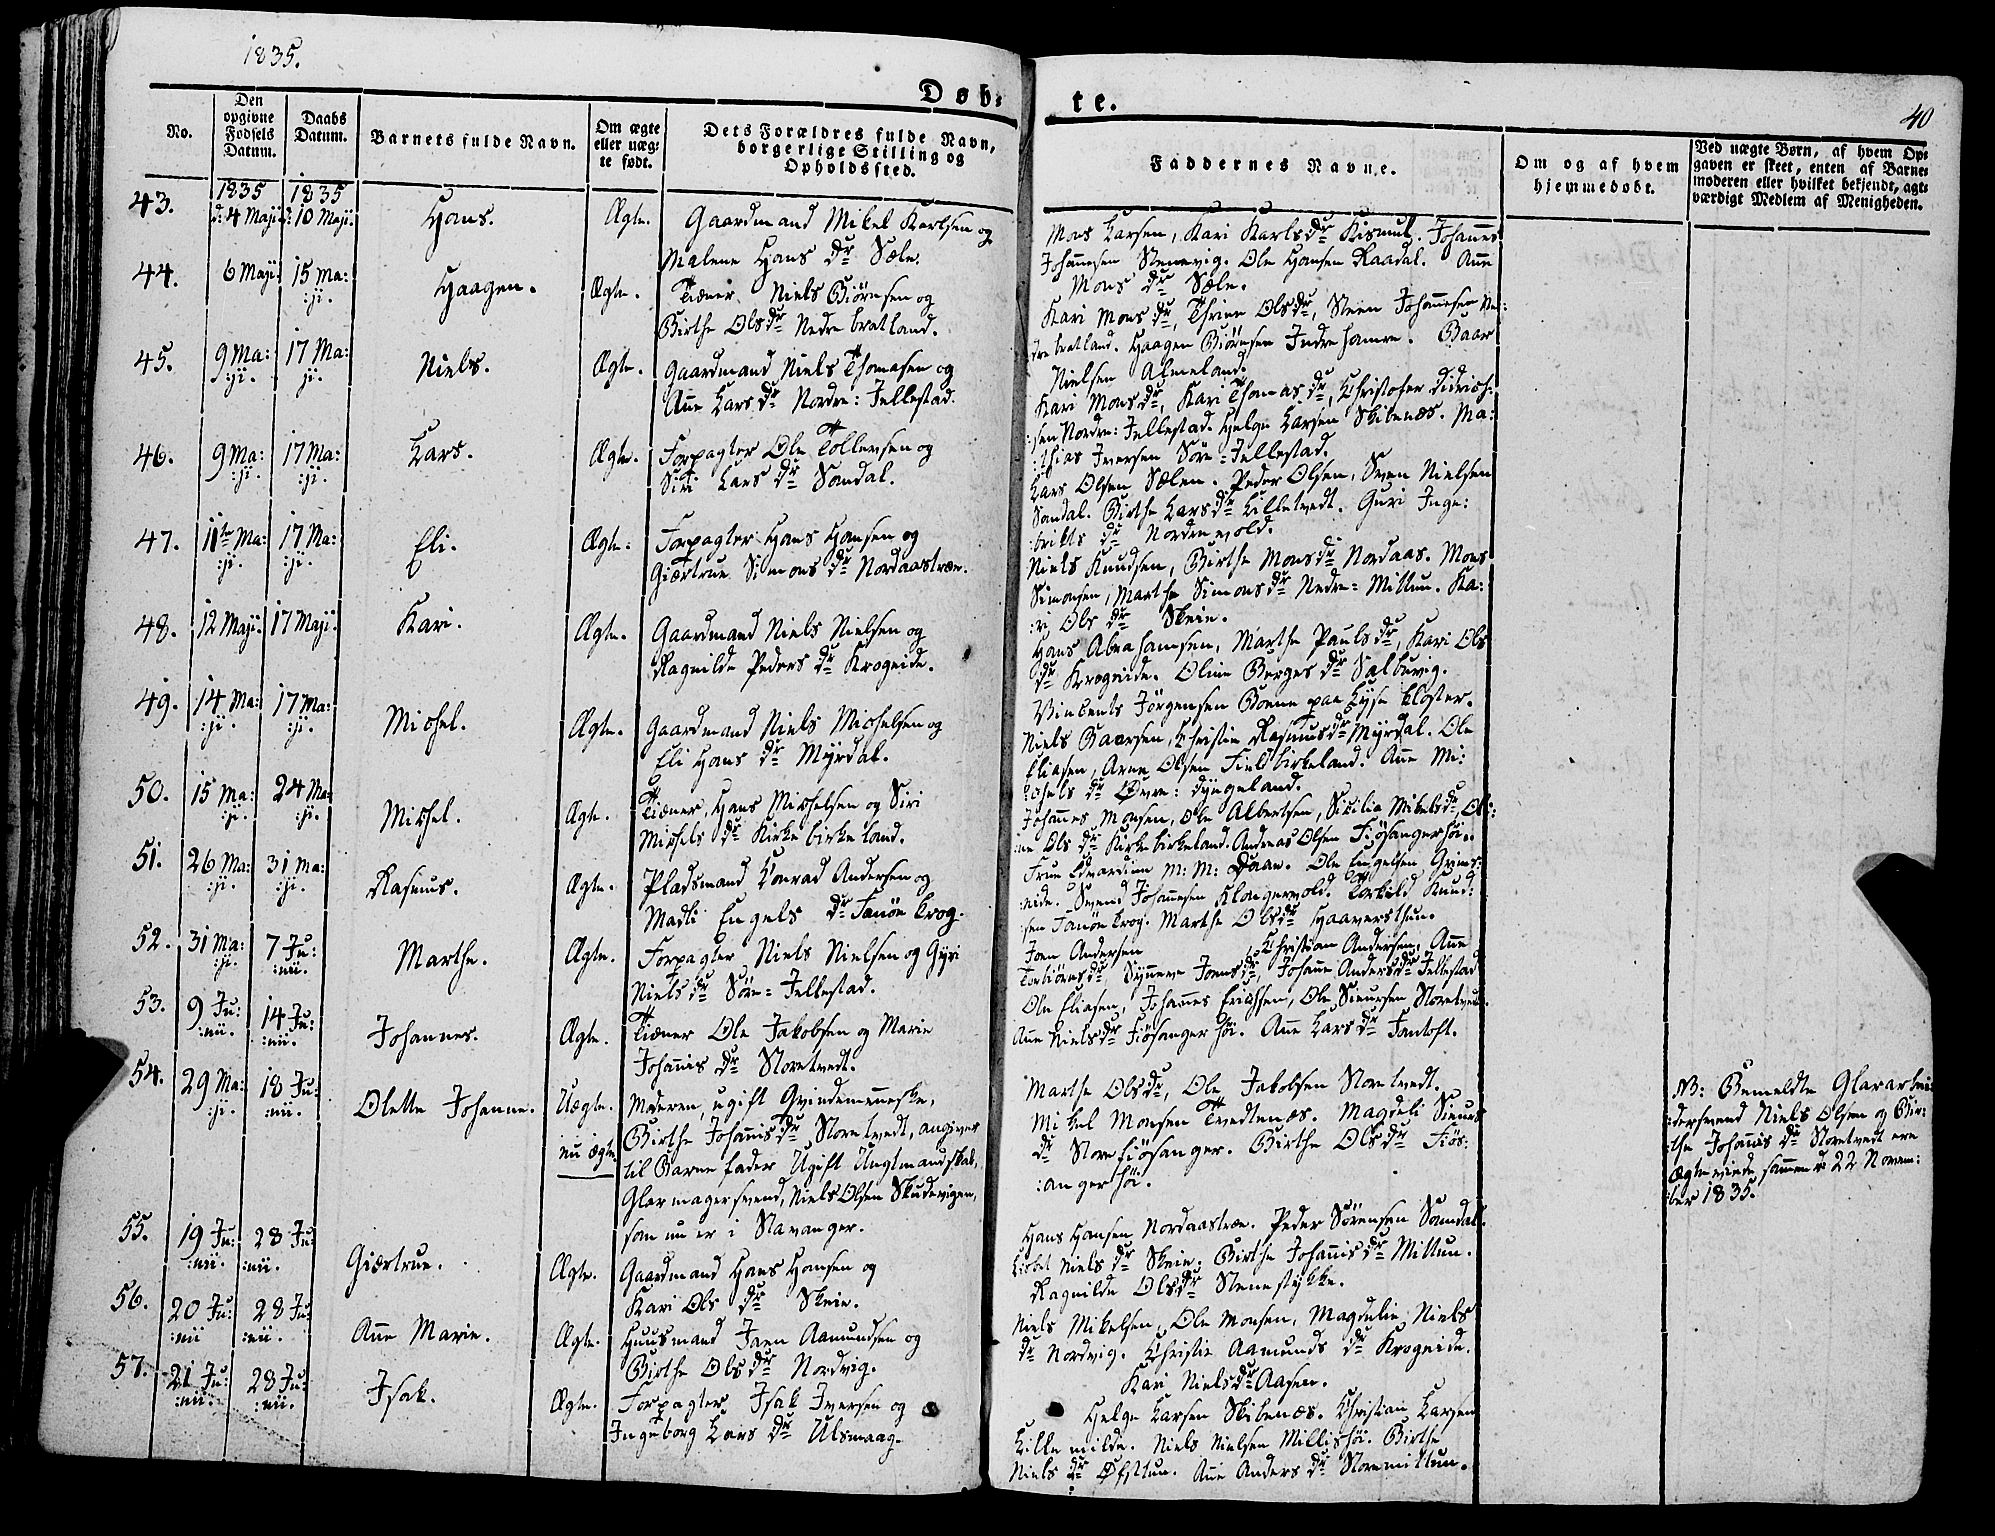 1835.
Døb:
te.
40
No.
Den
opgivne
Fødsels
Datum.
Daabs
Datum.
Barnets fulde Navn.
Om ægte
eller uæg:
te født.
Dets Forældres fulde Navn,
borgerlige Stilling og
Opholdssted.
Faddernes Navne.
Om og af hvem
hjemmedøbt.
Ved uægte Børn, af hvem Op:
gaven er skeet, enten af Barne:
moderen eller hvilket bekjendt, agt:
værdigt Medlem af Menigheden.
43.
1835
d: 4 Maji.
1835
d: 10 Maji.
Hans.
Ægte.
Gaardmand Mikel Karlsen og
Malene Hans dr Sæle.
Mons Larsen, Kari Karlsdr Kismul. Johannes
Johannesen Steenevig. Ole Hansen Raadal. Anne
Mons dr Sæle.
44.
6 Maji.
15 Ma:
:ji.
Haagen.
Ægte.
Tiener Niels Biørnsen og
Birthe Olsdr Nedre bratland.
Kari Monsdr, Thrine Olsdr, Steen Johannesen Ne:
dre bratland. Haagen Biørnsen Indre hamre. Baar
Nielsen Almeland.
45.
9 Ma:
:ji.
17 Ma:
ji.
Niels.
Ægte.
Gaardmand Niels Thomasen og
Anne Lars dr Nordre: Jellestad.
Kari Monsdr, Kari Thomasdr, Christofer Didrich:
:sen Nordre: Jellestad. Helge Larsen Skibenæs. Ma:
:thias Iversen Søre: Jellestad.
46.
9 Ma:
:ji.
17 Ma:
:ji.
Lars.
Ægte.
Forpagter Ole Tollevsen og
Siri Lars dr Sandal.
Lars Olsen Sælen. Peder Olsen, Sven Nielsen
Sandal. Birthe Larsdr Lilletvedt. Guri Inge:
:brikts dr Nordrevold.
47.
11te Ma:
:ji.
17 Ma:
:ji.
Eli.
Ægte:
Forpagter Hans Hansen og
Giærtrue Simons dr Nordaastræe.
Niels Knudsen, Birthe Monsdr Nordaas. Mons
Simonsen, Marthe Simonsdr Nedre: Mittun. Ka:
:ri Ols dr Skeie.
48.
12 Maji.
17 Maji.
Kari.
Ægte.
Gaardmand Niels Nielsen og
Ragnilde Peders dr Krogeide.
Hans Abrahamsen, Marthe Paulsdr, Kari Ols
dr Krogeide. Oline Berges dr Salbuvig.
Vincents Jørgensen Boene paa Lyse Kloster.
49.
14 Ma:
:ji.
17 Ma:
:ji.
Michel.
Ægte.
Gaardmand Niels Michelsen og
Eli Hans dr Myrdal.
Niels Baarsen, Christie Rasmusdr Myrdal. Ole
Eliasen, Arne Olsen Field birkeland. Anne Mi:
:chels dr Øvre: Dyngeland.
50.
15 Ma:
:ji.
24 Ma:
:ji.
Michel.
Ægte.
Tiener, Hans Michelsen og Siri
Michels dr Kirke birkeland.
Johannes Monsen, Ole Albertsen, Sicilia Mikelsdr, Oli:
:ne Ols dr Kirkebirkeland. Andreas Olsen Fiøsangerhøi.
51.
26 Ma:
:ji.
31 Ma:
:ji.
Rasmus.
Ægte.
Pladsmand Conrad Andersen og
Madli Engels dr Fanöe krog.
Frue Edvardine M: M: Daae. Ole Engelsen Grims:
:eide. Svend Johannesen Klongervold. Torkild Knud:
:sen Fanöe krog. Marthe Olsdr Haaversthun.
52.
31 Ma:
:ji.
7 Ju:
:nii.
Marthe.
Ægte.
Forpagter Niels Nielsen og Gyri
Nielsdr Søre: Jellestad.
Joen Andersen, Christian Andersen, Anne
Torbiørnsdr, Synneve Joensdr, Johanne Andersdr Jellestad
53.
9 Ju:
:nii.
14 Ju:
:nii.
Johannes.
Ægte.
Tiener Ole Jakobsen og Marie
Johannis dr Storetvedt.
Ole Eliasen, Johannes Erichsen, Ole Sieursen Storetvedt.
Anne Nielsdr Fiøsanger høi. Anne Lars dr Fantoft.
54.
29 Ma:
:ji.
18 Ju:
:nii.
Olette Johanne.
Uægte.
nu ægte
Moderen, ugift Qvindemenneske,
Birthe Johannisdr Storetvedt, angiver
til Barne fader Ugift Ungtmandskal,
Glarmagersvend, Niels Olsen Skudevigen,
som nu er i Stavanger.
Marthe Olsdr, Ole Jakobsen Storetvedt.
Mikel Monsen Tvedtenæs. Magdeli Sieurs
dr Store fiøsanger. Birthe Olsdr Fiøs:
:anger høi.
NB: Bemeldte Glararbei:
:dersvend Niels Olsen og Bir:
:the Johannis dr Storetvedt ere
Ægteviede sammen d 22 Novem:
:ber 1835.
55.
19 Ju:
:nii.
28 Ju:
:nii.
Giærtrue.
Ægte.
Gaardmand Hans Hansen og
Kari Ols dr Skeie.
Hans Hansen Nordaastræe. Peder Sørensen Sandal.
Lisbet Niels dr Skeie. Birthe Johannisdr Mittun.
Ragnilde Olsdr Stenestykke.
56.
20 Ju:
:nii
28 Ju:
:nii.
Anne Marie.
Ægte.
Huusmand Joen Aamundsen og
Birthe Ols dr Nordvig.
Niels Mikelsen, Ole Monsen, Magdelie Niels
dr Nordvig. Christie Aamunds dr Krogeide.
Kari Nielsdr Aasen.
57.
21 Ju:
:nii.
28 Ju:
:nii.
Isak.
Ægte.
Forpagter Isak Iversen og
Ingeborg Lars dr Ulsmaag.
Helge Larsen Skibenæs. Christian Larsen
Lille milde. Niels Nielsen Millishöi. Birthe
Niels dr Øfsttun. Anne Anders dr Storemittun.